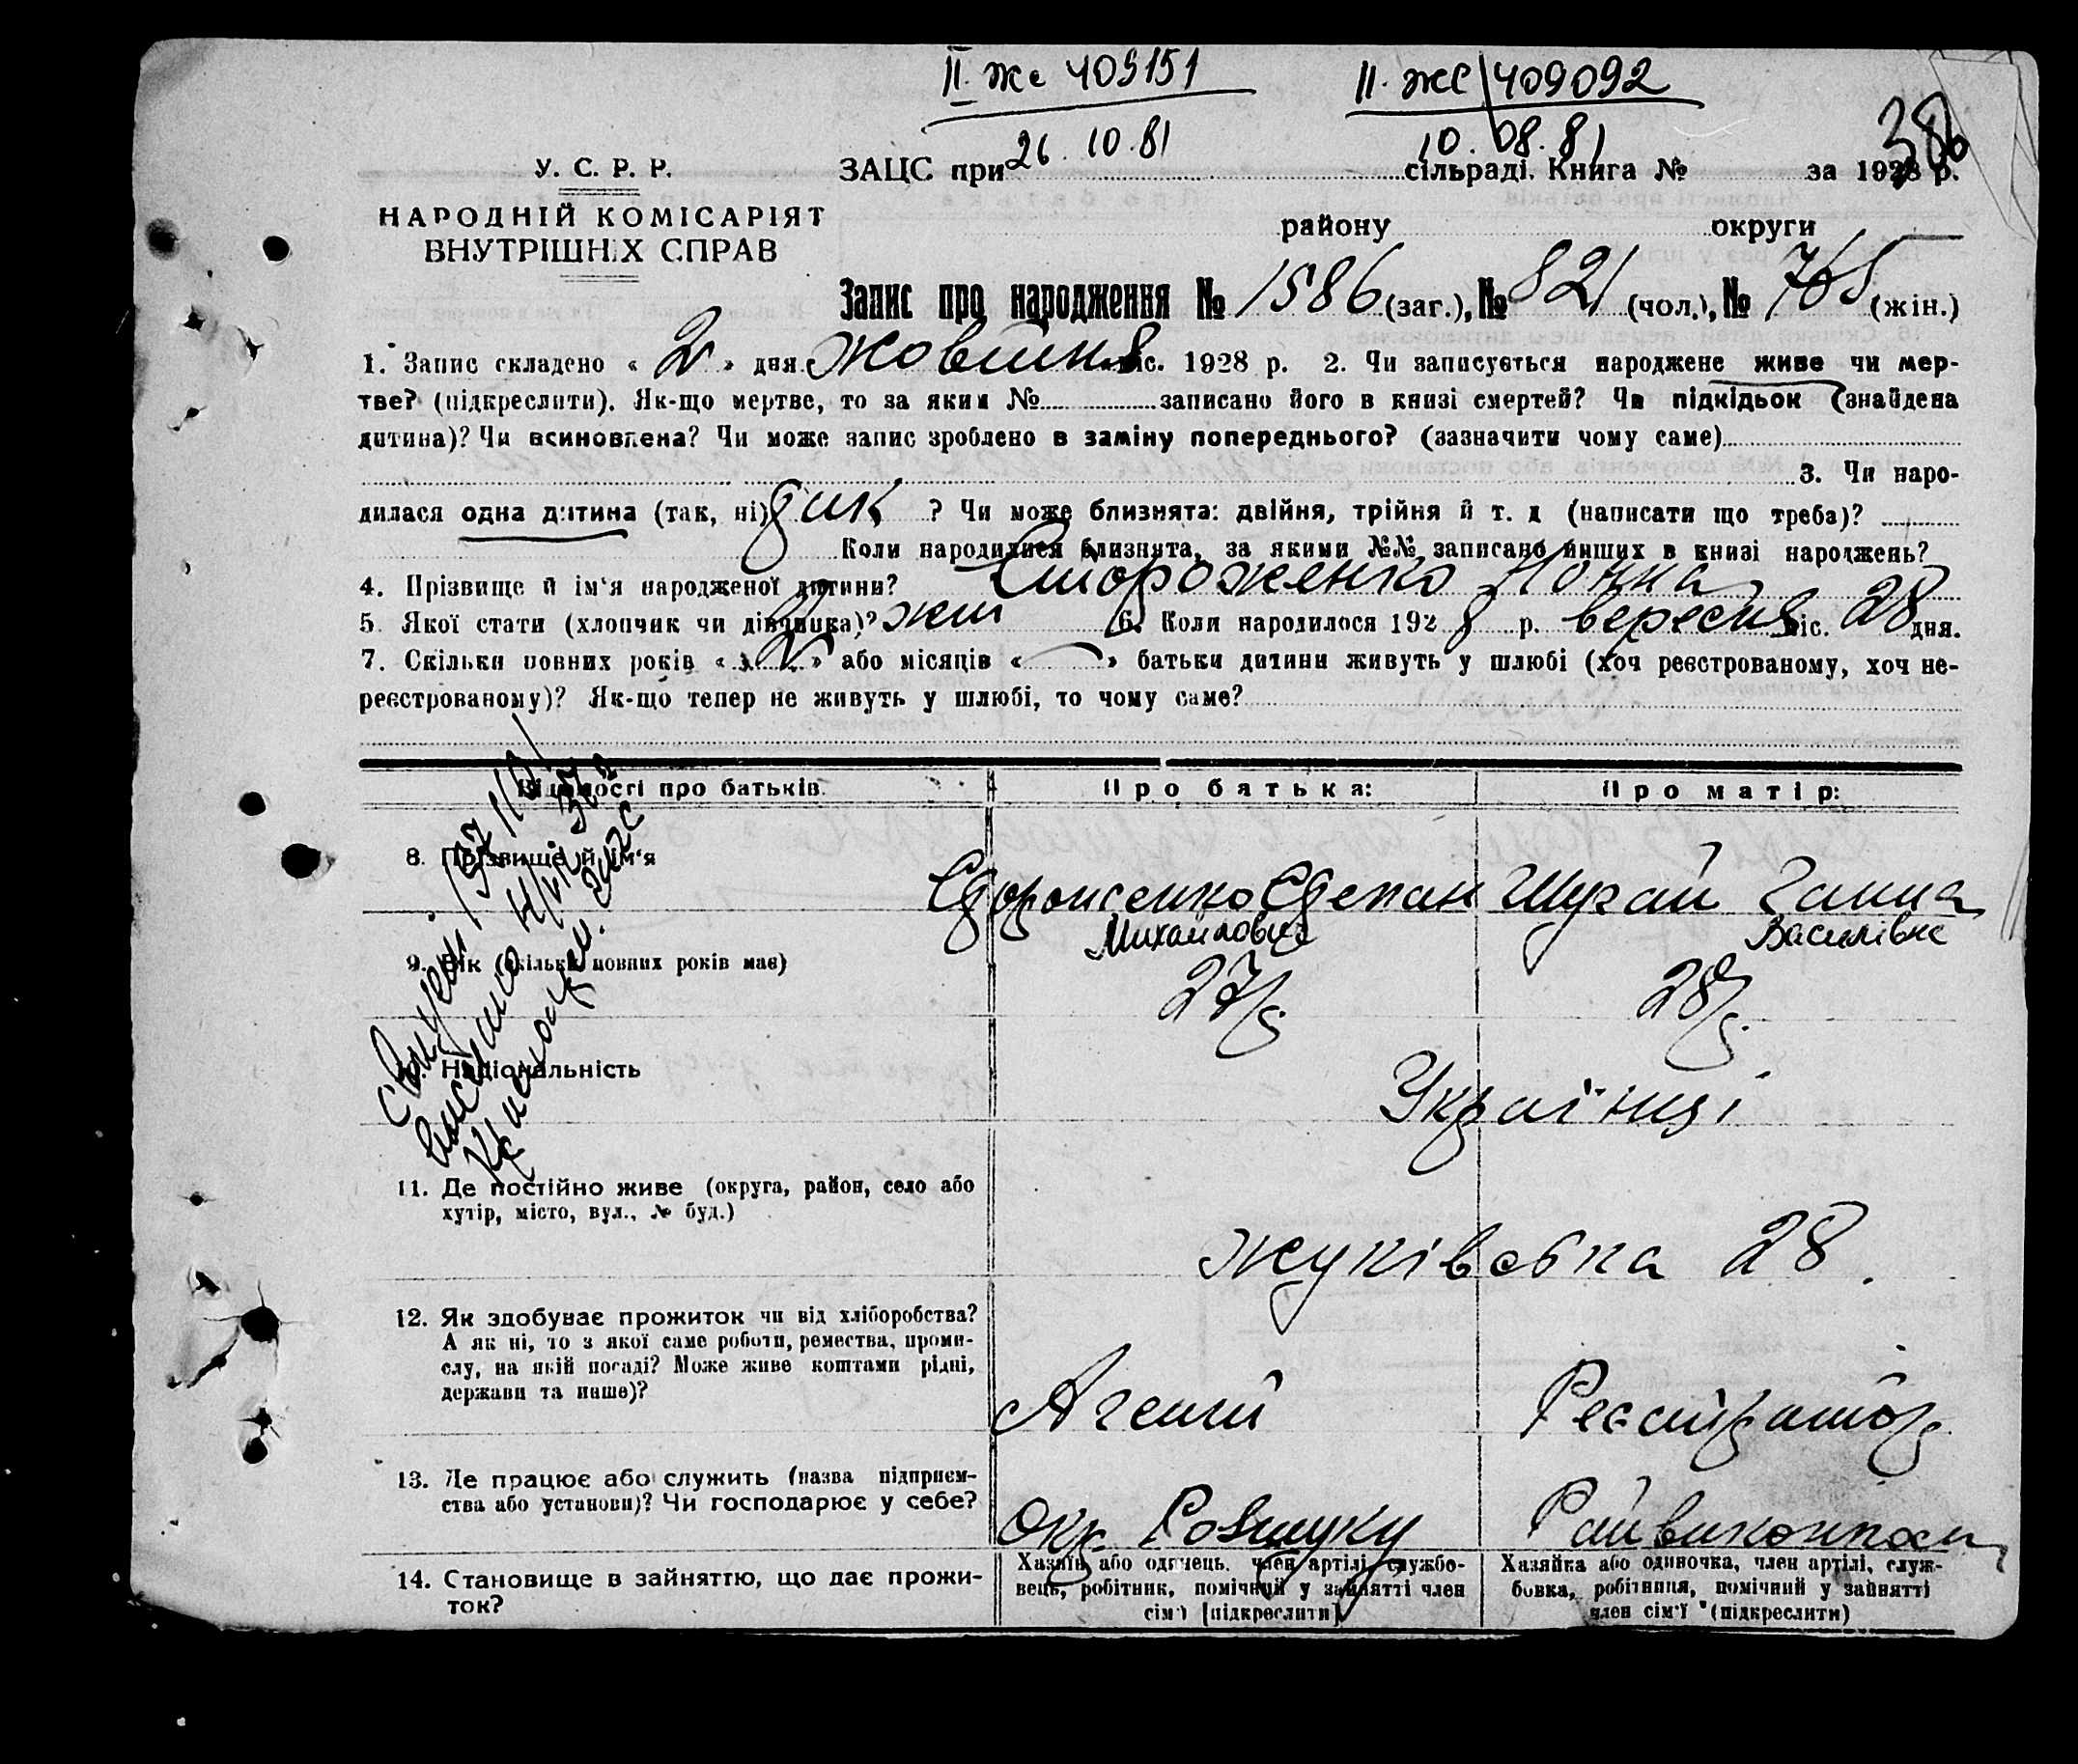 II. жс 409151
II. жс 409092
26.10.81
10.08.81
386
У. С. Р. Р.
ЗАЦС при сільраді. Книга № за 1928 р.
НАРОДНІЙ КОМІСАРІЯТ
ВНУТРІШНІХ СПРАВ
району округи
Запис про народження № 1586 (заг.), № 821 (чол.), № 765 (жін.)
1. Запис складено « 2 » дня Жовтня міс. 1928 р. 2. Чи записується народжене живе чи мер-
тве? (підкреслити). Як-що мертве, то за яким № записано його в книзі смертей? Чи підкідьок (знайдена
дитина)? Чи всиновлена? Чи може запис зроблено в заміну попереднього? (зазначити чому саме)
3. Чи наро-
дилася одна дитина (так, ні) ? Чи може близнята: двійня, трійня й т. д (написати що треба)?
Коли народилися близнята, за якими №№ записано инших в книзі народжень?
4. Прізвище й ім'я народженої дитини? Стороженко Нонна
5. Якої стати (хлопчик чи дівчинка)? жін 6. Коли народилося 1928 р. вересня міс. 28 дня.
7. Скільки повних років « 2 » або місяців « — » батьки дитини живуть у шлюбі (хоч реєстрованому, хоч не-
реєстрованому)? Як-що тепер не живуть у шлюбі, то чому саме?
Відомості про батьків. Про батька: Про матір:
8. Прізвище й ім'я Стороженко Степан Михайлович Шугай Ганна Василівна
9. Вік (скільки повних років має) 27 р. 28 р.
10. Національність Українці
11. Де постійно живе (округа, район, село або
хутір, місто, вул., № буд.)
Жуківська 28.
12. Як здобуває прожиток чи від хліборобства?
А як ні, то з якої саме роботи, ремества, проми-
слу, на якій посаді? Може живе коштами рідні,
держави та инше)?
Агент Реєстратор
13. Де працює або служить (назва підприєм-
ства або установи)? Чи господарює у себе?
Окр. Райвиконком
14. Становище в зайняттю, що дає прожи-
ток?
Хазяїн або одинець, член артілі, службо-
вець, робітник, помічний у зайнятті член
сім'ї [підкреслити]
Хазяйка або одиночка, член артілі, служ-
бовка, робітниця, помічний у зайнятті
член сім'ї (підкреслити)